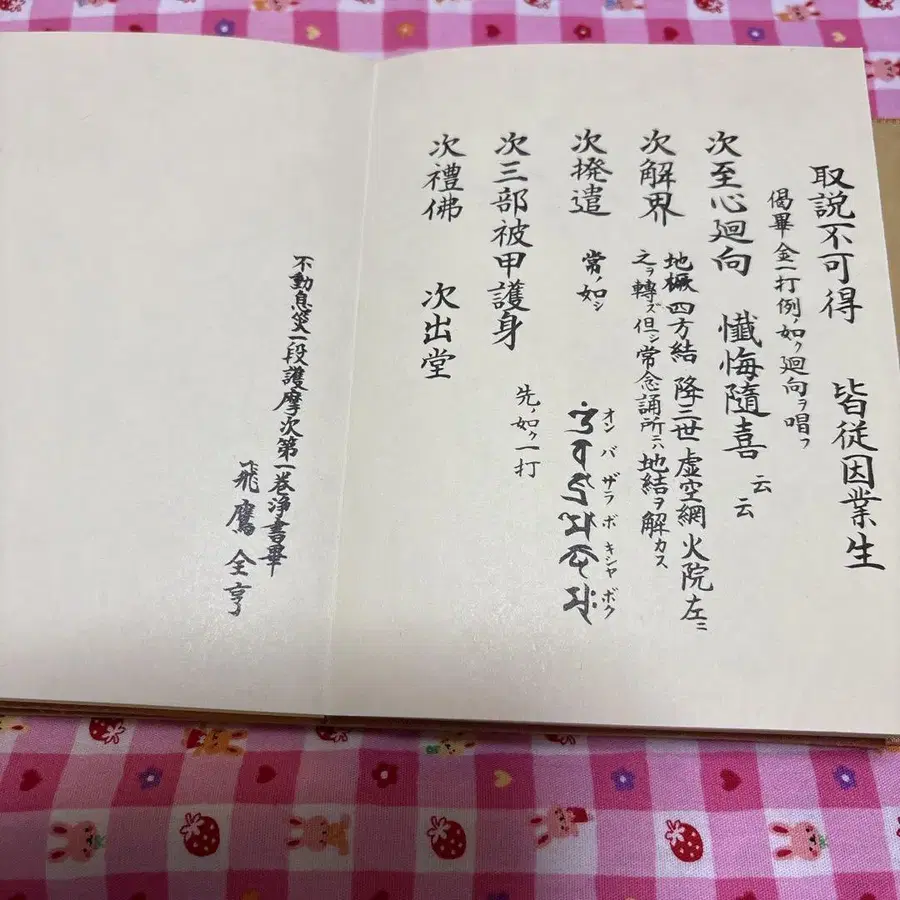 取説不可得　皆従因業生
偈畢金一打例ノ如ク廻向ヲ唱フ
次至心廻向　懺悔隨喜　云云
次解界　地橛 四方結 降三世 虚空網 火院 左ニ
之ヲ轉ズ但シ常念誦所ニハ地結ヲ解カス
次撥遣　常ノ如シ
オン バ ザラ ボ キシャ ボク
次三部被甲護身　先ノ如ク一打
次禮佛　次出堂
不動息災一段護摩次第一巻浄書畢
飛鷹全亨